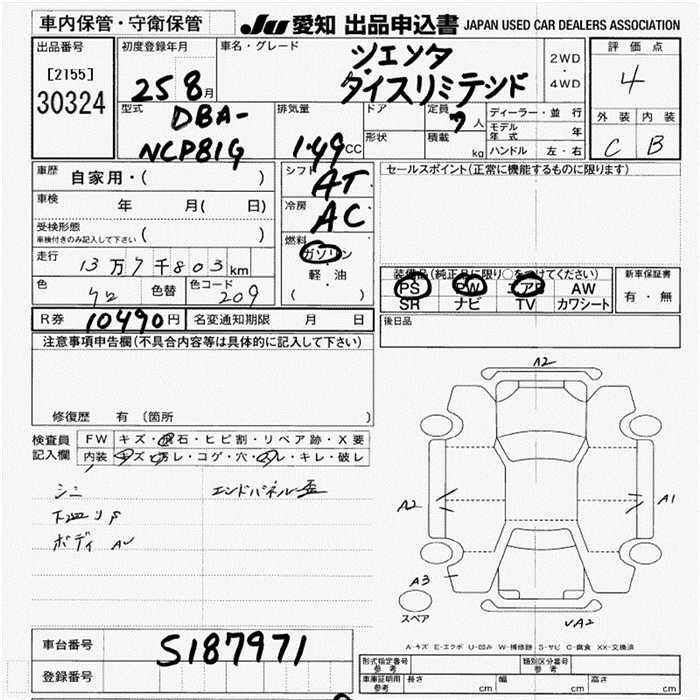 車内保管・守衛保管
JU 愛知 出品申込書 JAPAN USED CAR DEALERS ASSOCIATION
出品番号
[2155]
30324
初度登録年月
25 8月
車名・グレード
シエンタ
ダイスリミテッド
2WD
・
4WD
評価点
4
外装 内装
C B
型式
DBA-
NCP81G
排気量
1.49CC
ドア
形状
定員
7人
積載
kg
ディーラー・並行
モデル年式 年
ハンドル 左・右
車歴
自家用・( )
車検
年 月( 日)
受検形態
車検付きのみ記入して下さい ( )
走行
13万7千803km
色
色替
色コード
209
シフト
AT
冷房
AC
燃料
ガソリン
・
軽・油
( )
セールスポイント(正常に機能するものに限ります)
装備品(純正品に限り○をつけてください)
PS PW エアB AW
SR ナビ TV カワシート
新車保証書
有・無
後日品
R券 10490円 名変通知期限 月 日
注意事項申告欄(不具合内容等は具体的に記入して下さい)
修復歴 有〔箇所
検査員
記入欄
FW キズ・飛石・ヒビ割・リペア跡・X要
内装 キズ・ヨゴレ・コゲ・穴・スレ・キレ・破レ
エンドパネル歪
ボディ
A2
A2
A1
A3
スペア
A2
A-キズ E-エクボ U-凹み W-補修跡 S-サビ C-腐食 XX-交換済
車台番号
S187971
登録番号
形式指定番号
参考
類別区分番号
参考
車庫証明用
参考
長さ cm 幅 cm 高さ cm